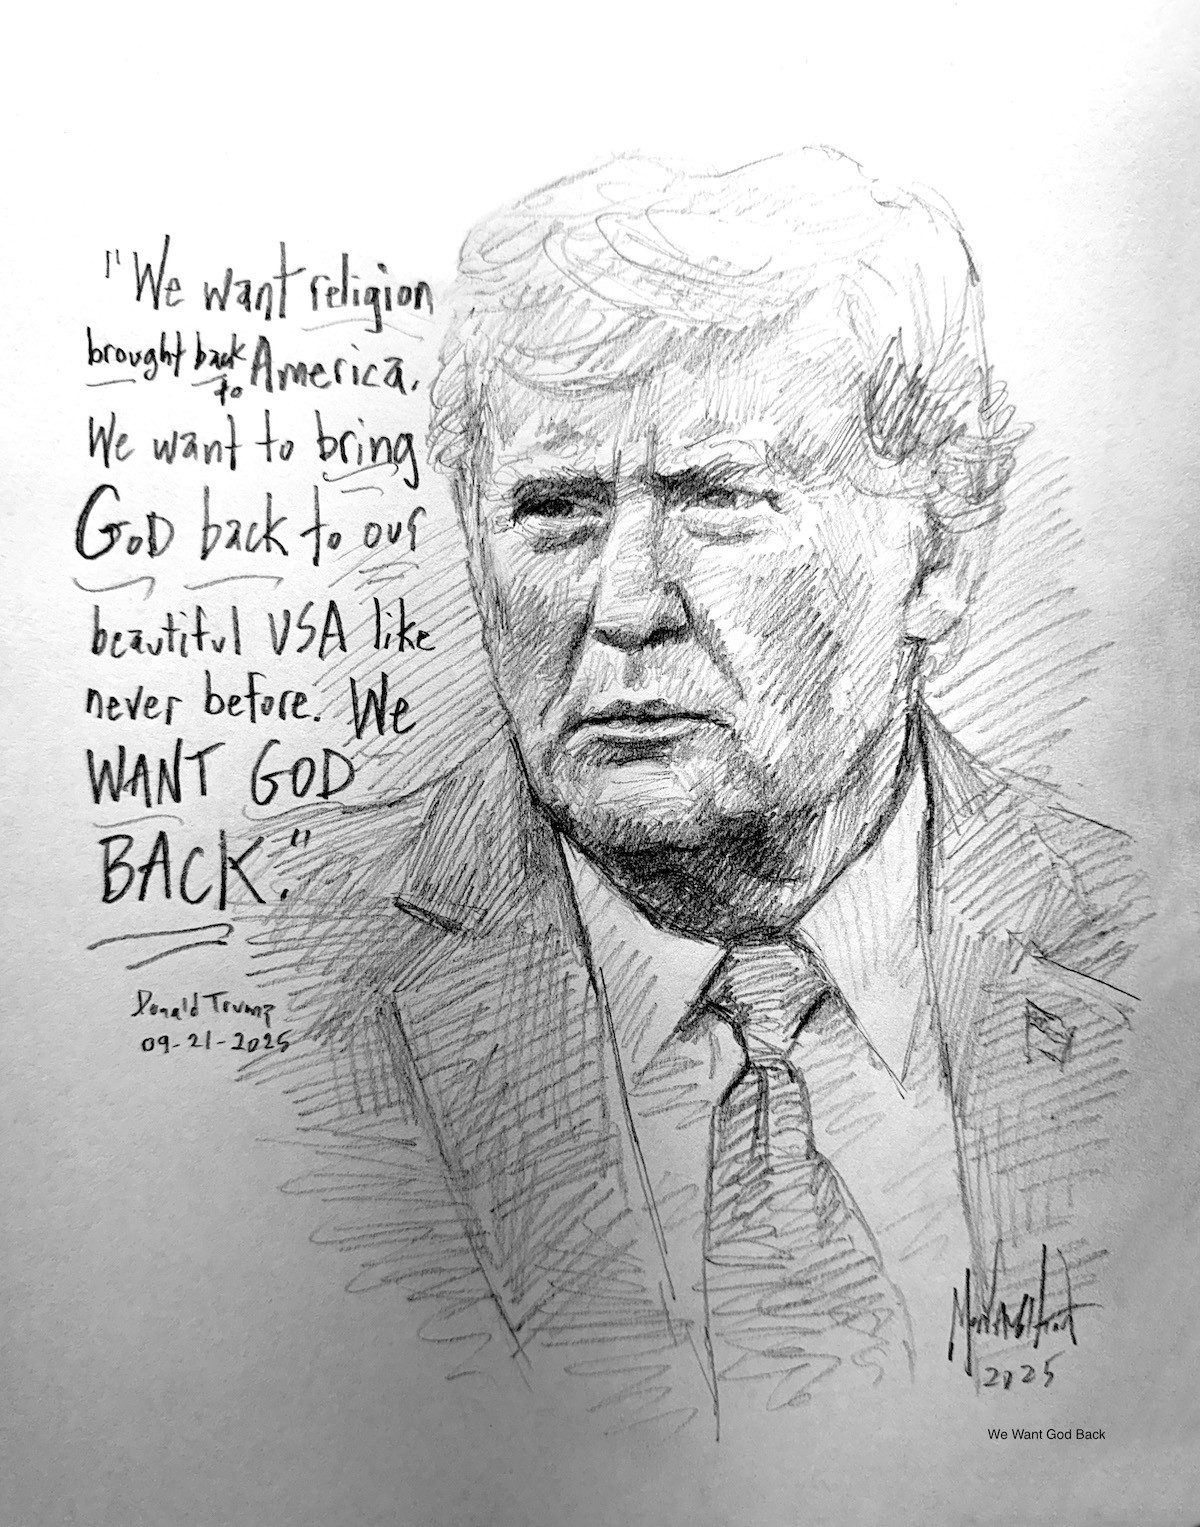 "We want religion
brought back to America.
We want to bring
GOD back to our
beautiful USA like
never before. We
WANT GOD
BACK."
Donald Trump
09-21-2025
2025
We Want God Back